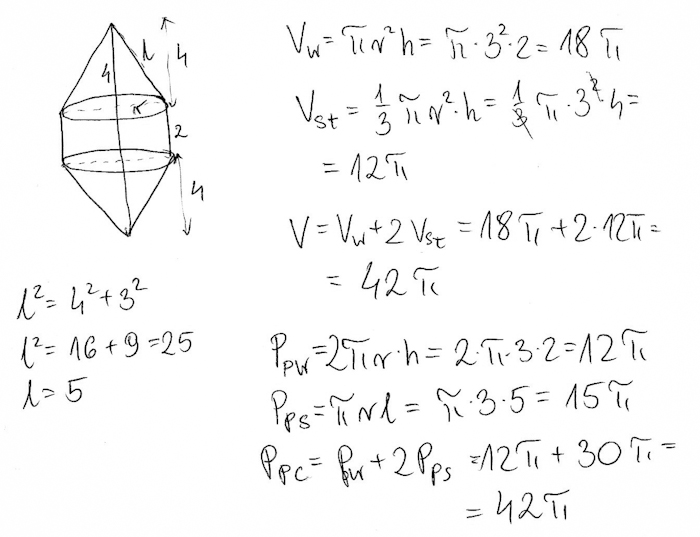 l
4
4
r
2
4
V_w = πr²h = π · 3² · 2 = 18π
V_st = 1/3 πr² · h = 1/3 π · 3² 4 =
= 12π
V = V_w + 2 V_st = 18π + 2 · 12π =
= 42π
l² = 4² + 3²
l² = 16 + 9 = 25
l = 5
P_pw = 2πr · h = 2 · π · 3 · 2 = 12π
P_ps = πrl = π · 3 · 5 = 15π
P_pc = P_w + 2P_ps = 12π + 30π =
= 42π